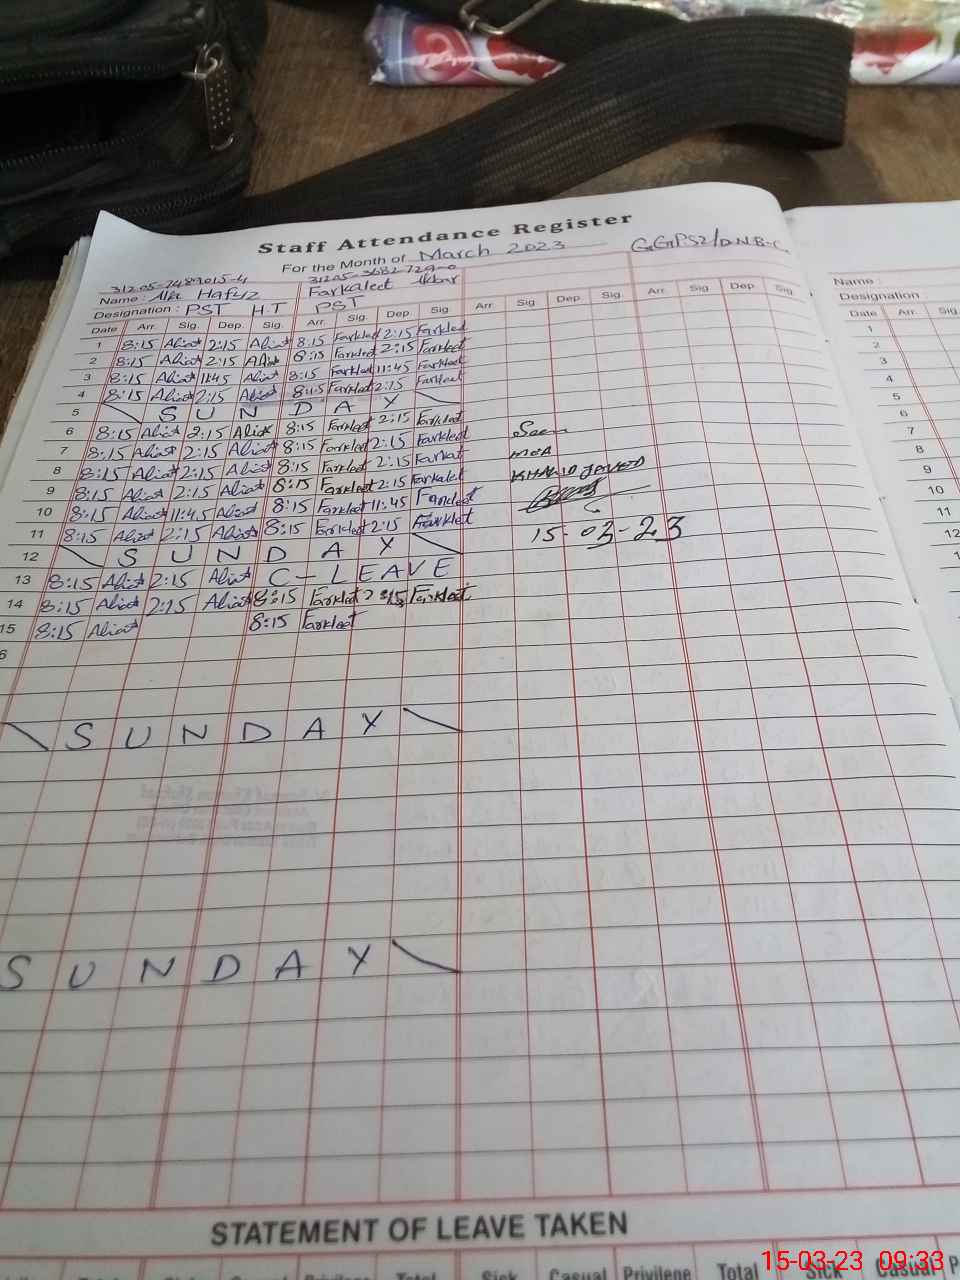 Staff Attendance Register
For the Month of March 2023
31205-7489015-4 31205-3682729-0
Name : Hafiz Farkaleet Name :
Designation : PST H.T PST Designation
Date Arr. Sig. Dep. Sig. Arr. Sig. Dep Sig Arr. Sig Dep. Sig Arr. Sig. Dep. Sig. Date Arr. Sig.
1 8:15 Aliat 2:15 Aliat 8:15 Farkleet 2:15 Farkleet 1
2 8:15 Aliat 2:15 Aliat 8:15 Farkleet 2:15 Farkleet 2
3 8:15 Aliat 11:45 Aliat 8:15 Farkleet 11:45 Farkleet 3
4 8:15 Aliat 2:15 Aliat 8:15 Farkleet 2:15 Farkleet 4
5 S U N D A Y 5
6 8:15 Aliat 2:15 Aliat 8:15 Farkleet 2:15 Farkleet 6
7 8:15 Aliat 2:15 Aliat 8:15 Farkleet 2:15 Farkleet Seen 7
8 8:15 Aliat 2:15 Aliat 8:15 Farkleet 2:15 Farkat MEA 8
9 8:15 Aliat 2:15 Aliat 8:15 Farkleet 2:15 Farkalet KHALID JAVED 9
10 8:15 Aliat 11:45 Aliat 8:15 Farkleet 11:45 Farkleet 10
11 8:15 Aliat 2:15 Aliat 8:15 Farkleet 2:15 Farkleet 15-03-23 11
12 S U N D A Y 12
13 8:15 Aliat 2:15 Aliat C - LEAVE
14 8:15 Aliat 2:15 Aliat 8:15 Farkleet 2:15 Farkleet
15 8:15 Aliat 8:15 Farkleet
6
S U N D A Y
S U N D A Y
STATEMENT OF LEAVE TAKEN
Total Sick Casual Privilene Total Sick Casual P
15-03-23 09:33